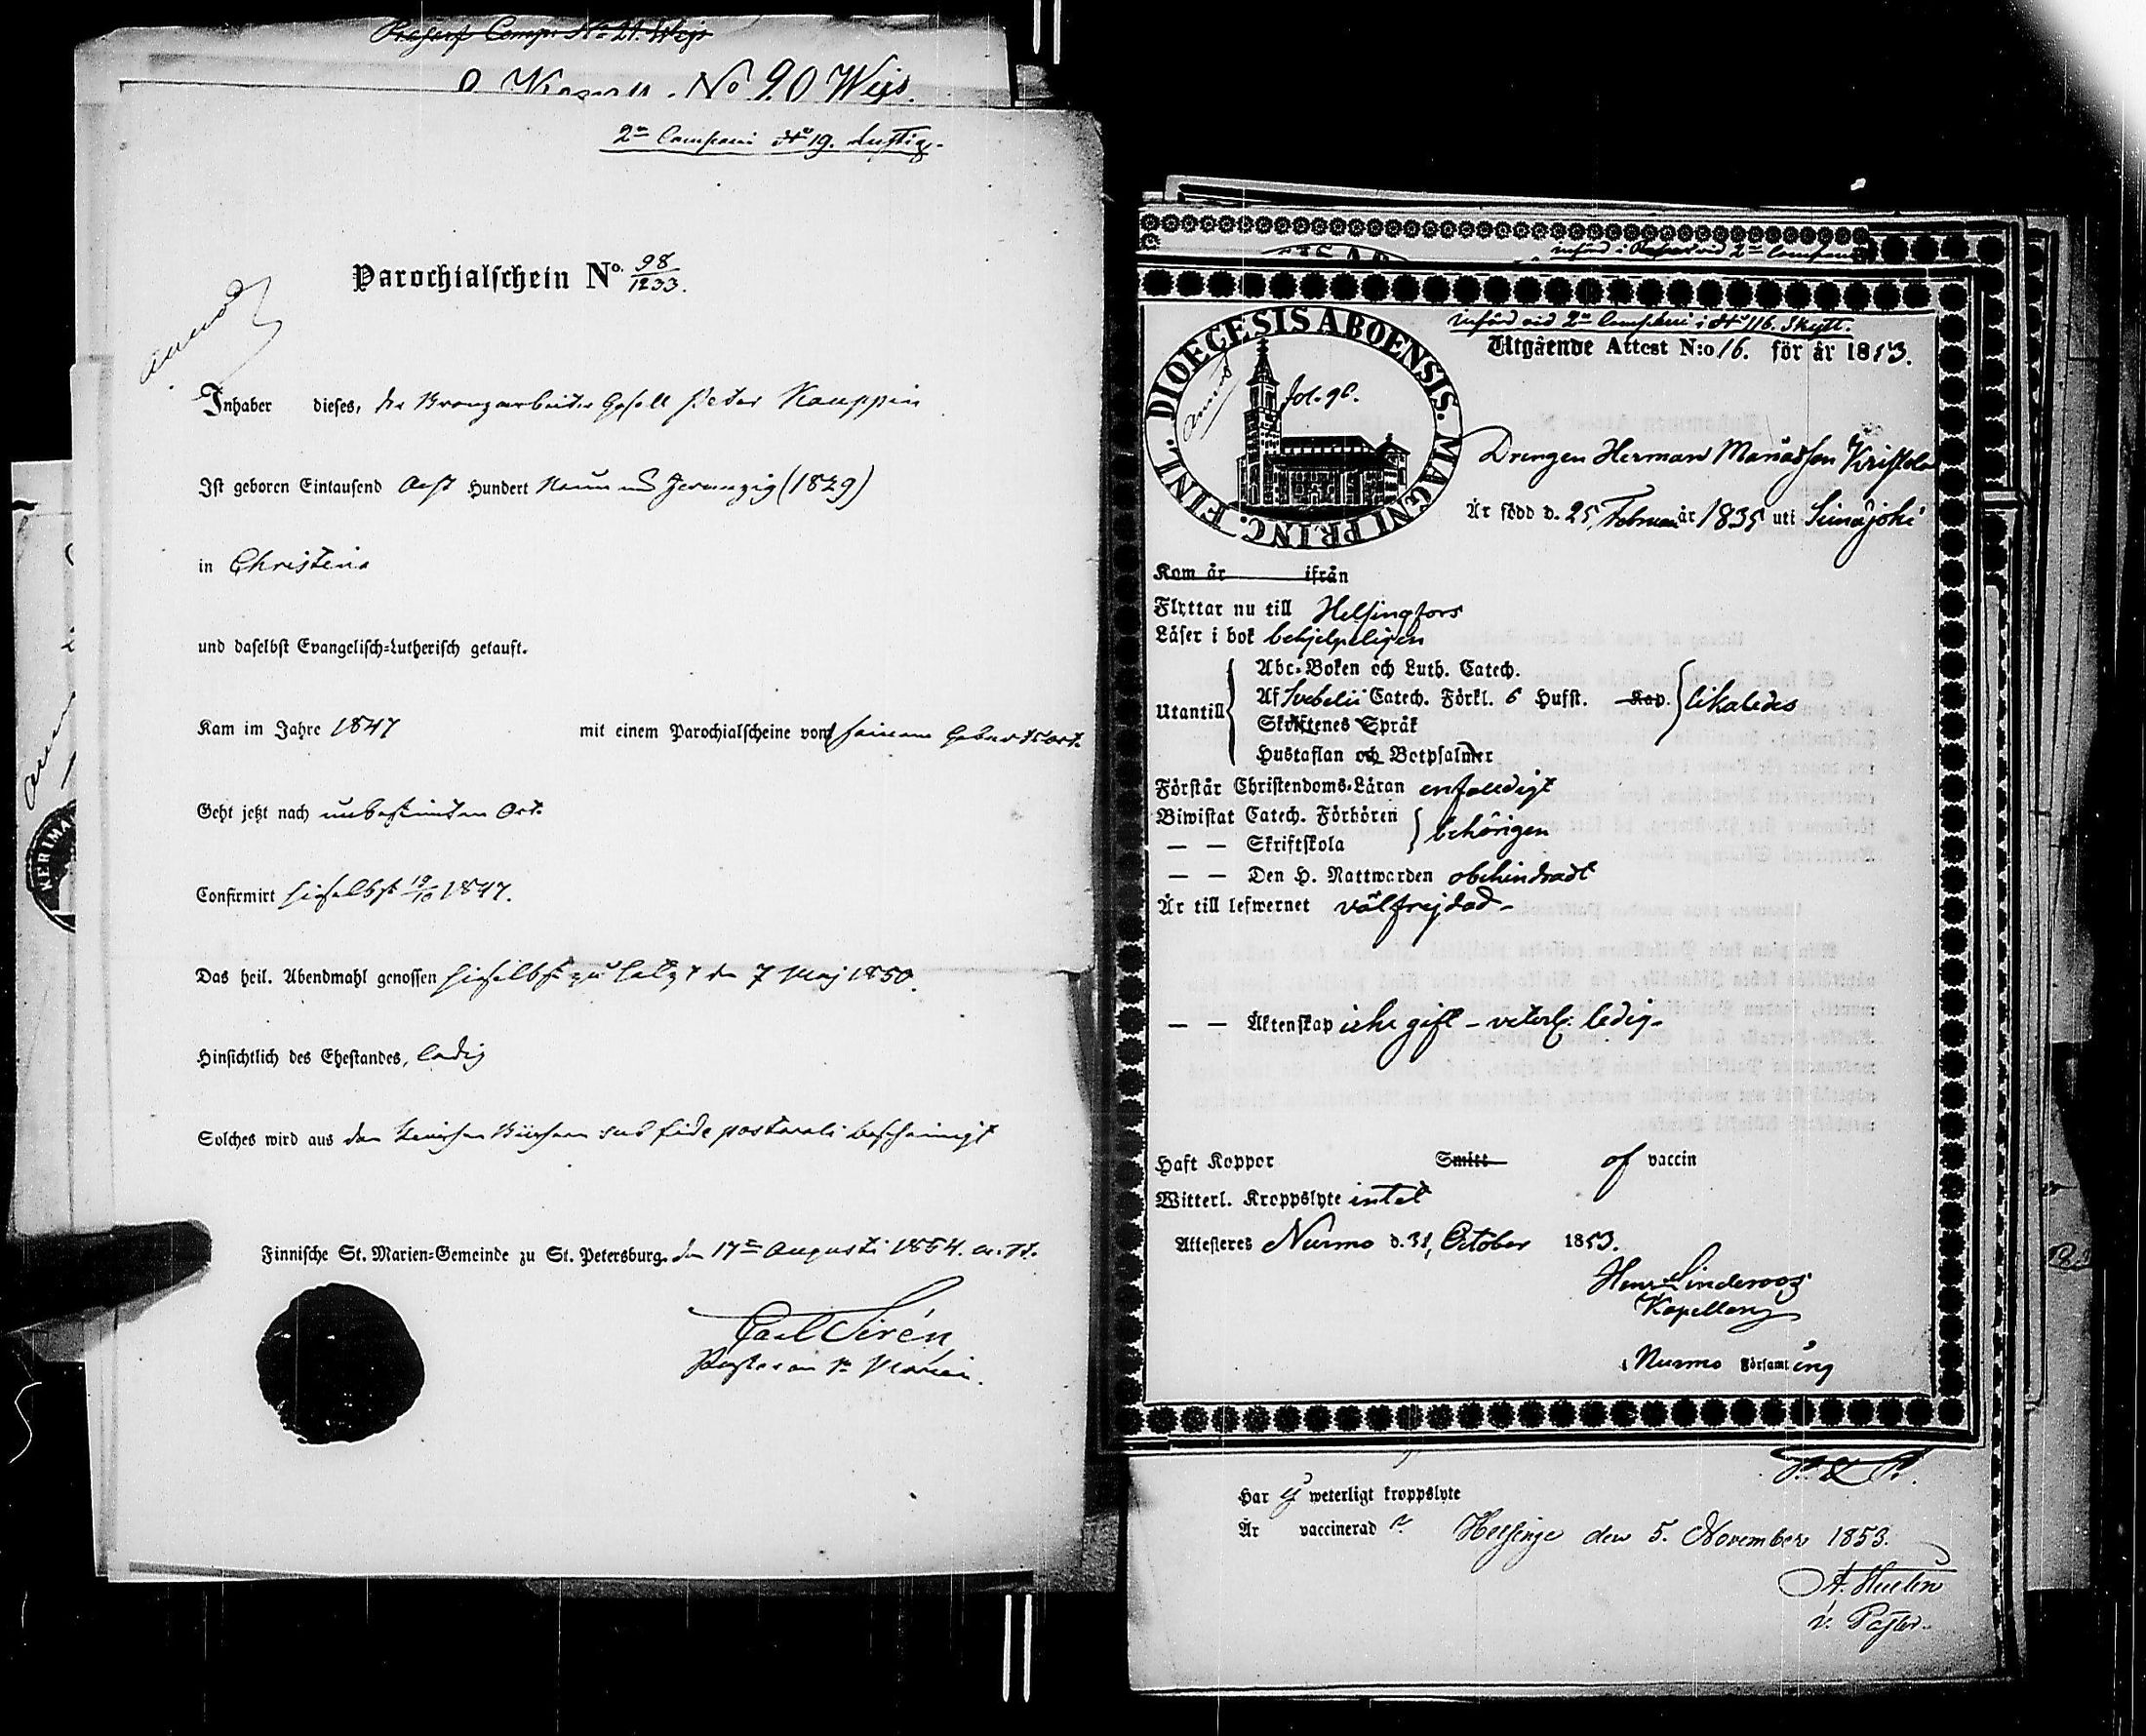 No 20 Weijs.
2n Compani No 19. Lustig.
Parochialschein No. 98/1233.
Inhaber dieses, der Bronzearbeiter Gesell Peter Kauppin
Ist geboren Eintausend Acht Hundert Neun und Zwanzig (1829)
in Christina
und daselbst Evangelisch-Lutherisch getauft.
Kam im Jahre 1847 mit einem Parochialscheine vom seinem Geburtsort.
Geht jetzt nach unbestimten Ort.
Confirmirt hieselbst 19/10 1847.
Das heil. Abendmahl genossen hieselbst zu letzt den 7 Maj 1850.
Hinsichtlich des Ehestandes, ledig
Solches wird aus den Kirchen Büchern sub fide pastorali bescheinigt
Finnische St. Marien-Gemeinde zu St. Petersburg. den 17n Augusti 1854. a. St.
Carl Sirén
Pastor an St Marien.
införd vid 2n Compani i No 116. Skytt.
Utgående Attest N:o 16. för år 1853.
DIOECESIS ABOENSIS. MAGNI PRINC. FINL.
fol. 96.
Drengen Herman Manasson Kristola
Är född d. 25 Februari år 1835 uti Seinäjoki
Kom år ifrån
Flyttar nu till Helsingfors
Läser i bok behjelpeligen
Utantill
Abc-Boken och Luth. Catech.
Af Svebelii Catech. Förkl. 6 Hufst. Kap. likaledes
Skriftenes Språk
Hustaflan och Botpsalmer
Förstår Christendoms-Läran enfaldigt
Biwistat Catech. Förhören
— — Skriftskola behörigen
— — Den H. Nattwarden obehindradt
Är till lefwernet välfrejdad-
— — Äktenskap icke gift - veterl. ledig-
Haft Koppor Smitt af vaccin
Witterl. Kroppslyte intet
Attesteras Nurmo d. 31, October 1853.
Henr Linderoos
Kapellan
i Nurmo Församling
Har ej weterligt kroppslyte
Är vaccinerad
Helsinge den 5. November 1853.
v. Pastor.